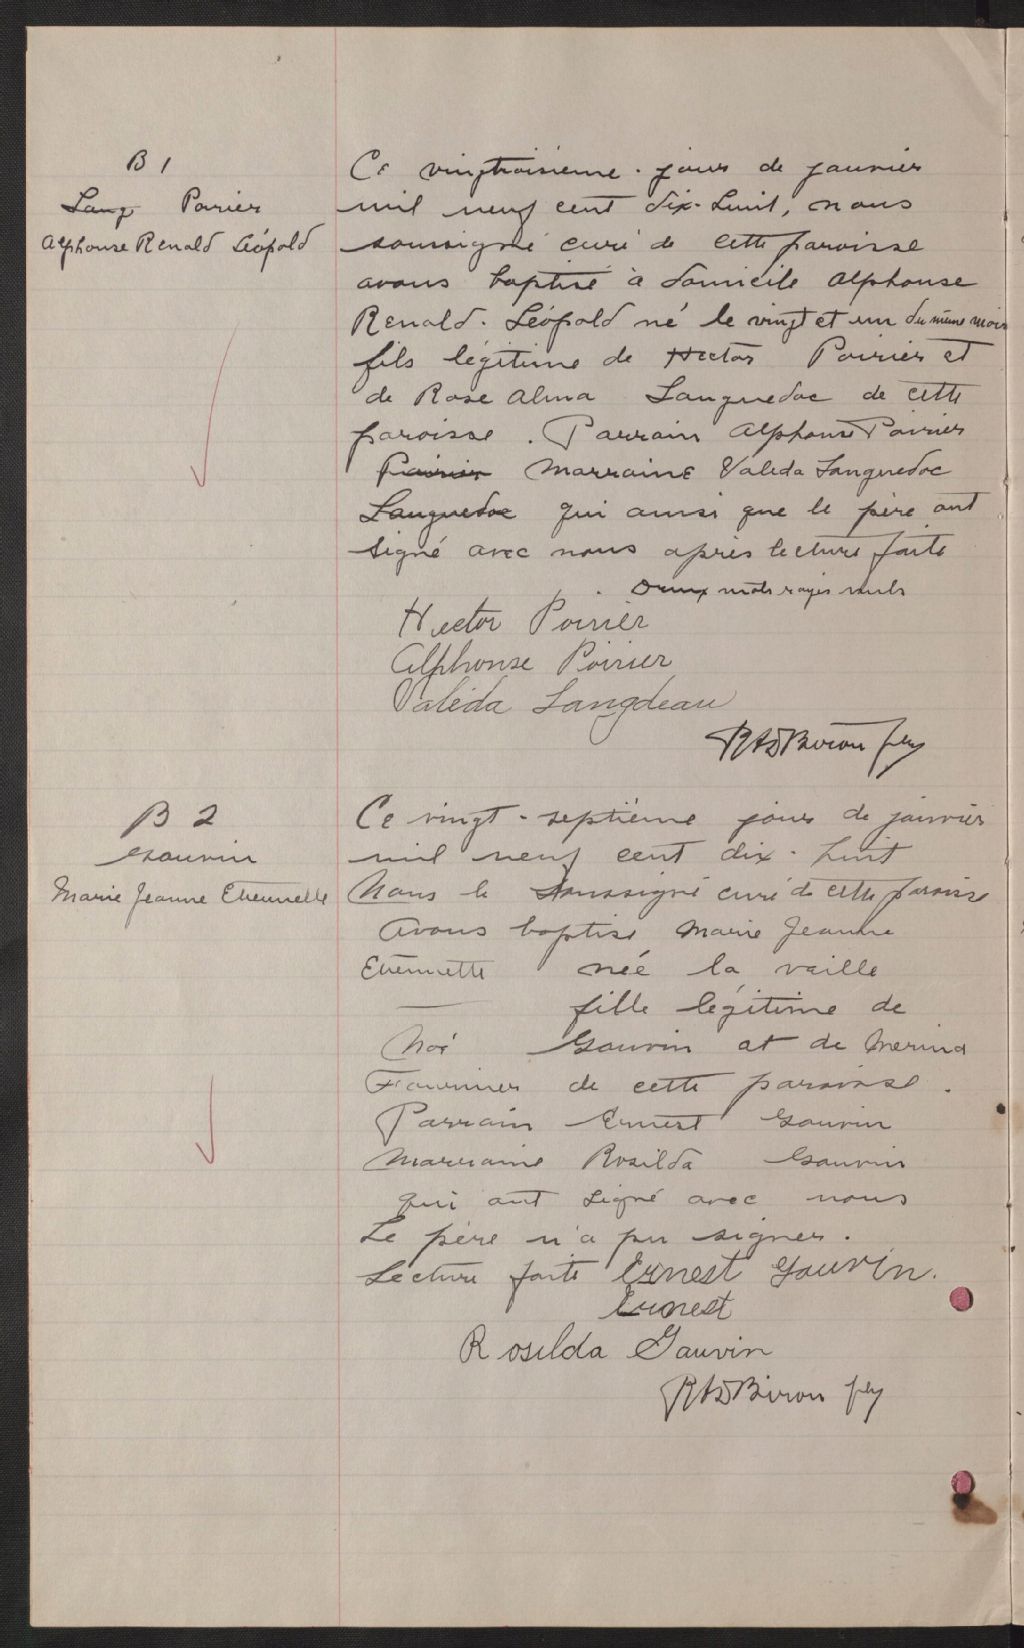 B 1
Lang Poirier
Alphonse Renald Léopold
Ce vingtroisième. jour de janvier
mil neuf cent dix-huit, nous
soussigné curé de cette paroisse
avons baptisé à domicile Alphonse
Renald. Léopold né le vingt et un du même mois
fils légitime de Hector Poirier et
de Rose Alma Languedoc de cette
paroisse. Parrain Alphonse Poirier
Poirier Marraine Valeda Languedoc
Languedoc qui ainsi que le père ont
signé avec nous après lecture faite
Deux mots rayés nuls
Hector Poirier
Alphonse Poirier
Valéda Langdeau
RAD Biron ptre
B 2
Gauvin
Marie Jeanne Etiennette
Ce vingt-septième jour de janvier
mil neuf cent dix-huit
Nous le soussigné curé de cette paroisse
Avons baptisé Marie Jeanne
Etiennette née la veille
fille légitime de
Noé Gauvin et de Merina
Fournier de cette paroisse.
Parrain Ernest Gauvin
Marraine Rosilda Gauvin
qui ont signé avec nous
Le père n'a pu signer.
Lecture faite Ernest Gauvin.
Ernest
Rosilda Gauvin
RAD Biron ptre